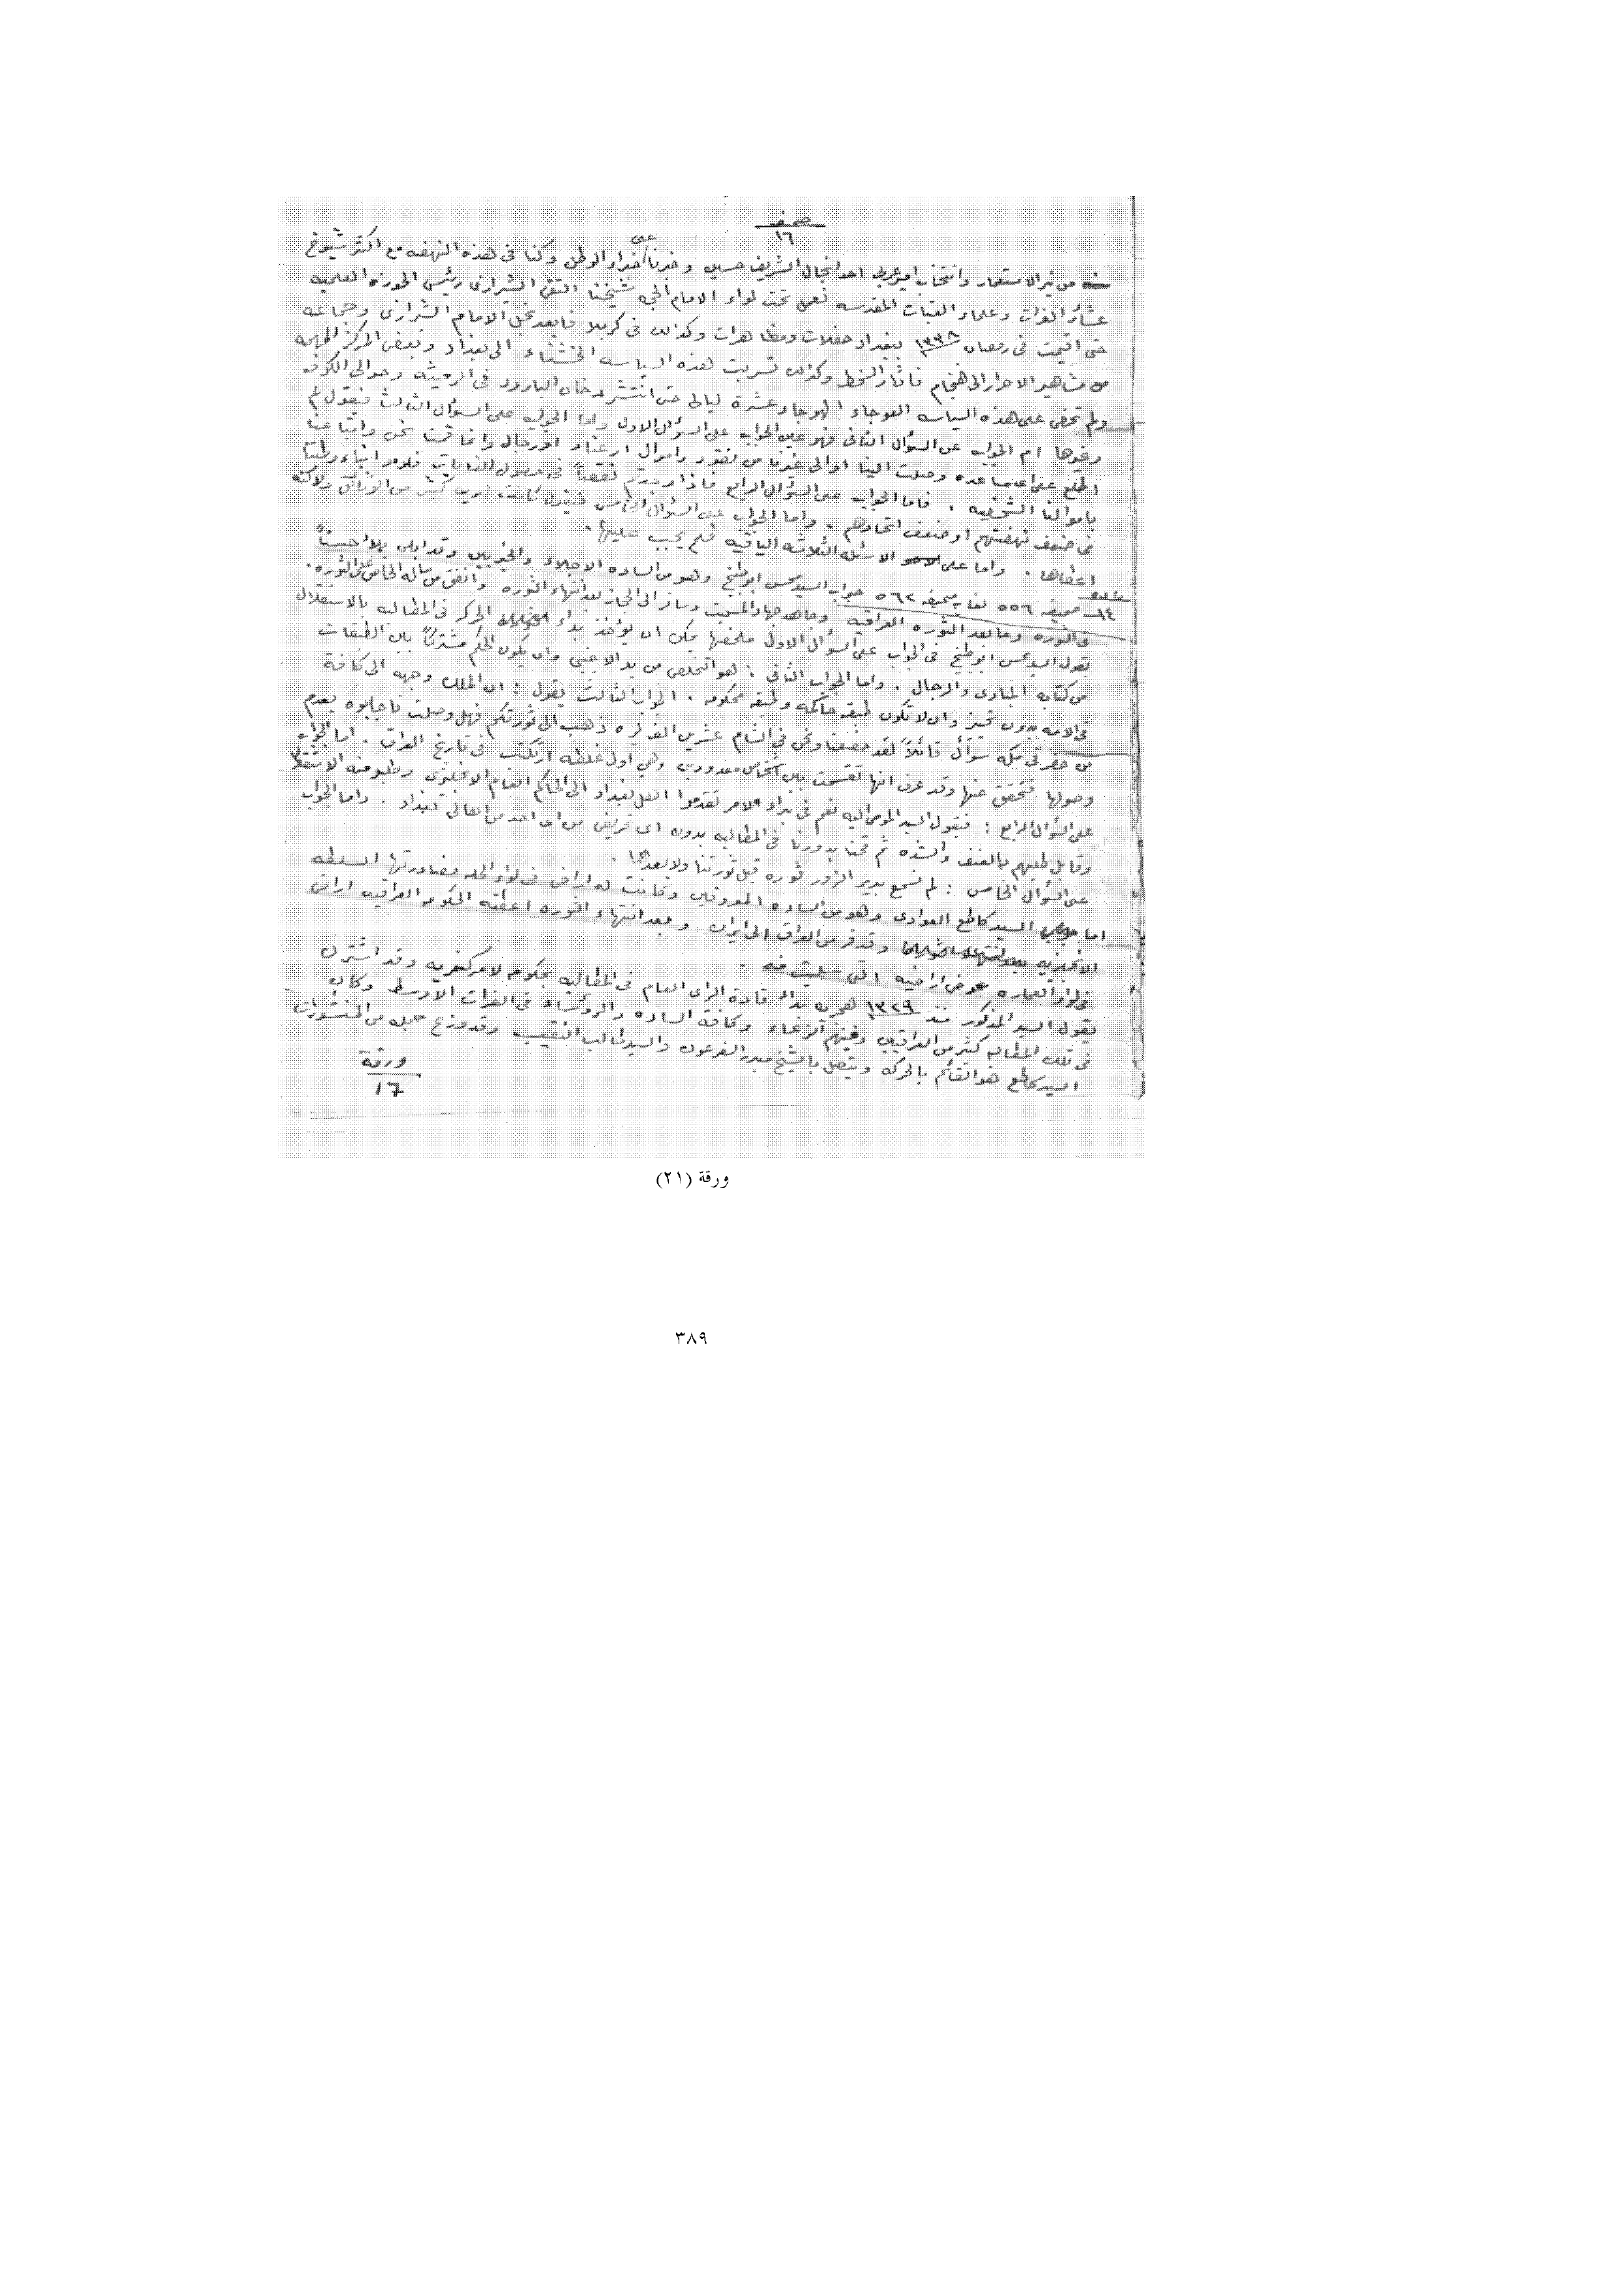 صحيفه
١٦
من نير الاستعمار وانتخاب امير عربي احد انجال الشريف حسين وحزنا على خداء الوطن وكنا في هذه النهضه مع اكثر شيوخ
عشائر الفرات وعلماء العتبات المقدسه نعمل تحت لواء الامام الحجه شيخنا التقي الشيرازي رئيس الحوزه العلميه
حتى اقيمت في رمضان ١٣٣٨ ببغداد حفلات ومظاهرات وكذلك في كربلا فابعد نجل الامام الشيرازي وجماعه
من مشاهير الاحرار الى هنجام فاثار السخط وكذلك تسربت هذه السياسه الخشناء الى بغداد وبعض المراكز المهمه
ولم تمضى على هذه السياسه العوجاء الهوجاء عشرة ليالي حتى انتشر دخان البارود في الرميثه وحوالي الكوفه
وغيرها ام الجواب عن السؤال الثاني فهو عين الجواب على السؤال الاول واما الجواب على السؤال الثالث فيقول لم
اطلع على اي مساعده وصلت الينا او الى غيرنا من نقود واموال او عتاد او رجال وانما قمنا نحن واتباعنا
باموالنا الشخصيه . فاما الجواب على السؤال الرابع فاذا وجدتم نقصاً في حصول الغايات فلوموا ابناء وطننا
في ضعف نهضتهم او ضعف اتحادهم . واما الجواب على السؤال الخامس فيقول كانت لديه كثير من الوثائق ولاكنه
اعطاها . واما على الاسئله الثلاثه الباقيه فلم يجب عليها .
١٤ـ صحيفه ٥٥٦ لغاية صحيفه ٥٦٢ جواب السيد محسن ابو طبيخ وهو من الساده الاجلاء والخيرين وقد ابلى بلاءً حسناً
في الثوره وما بعد الثوره العراقيه وجاهد جهاد المستميت وسافر الى الحجاز بعد انتهاء الثوره وانفق من ماله الخاص على الثوره.
يقول السيد محسن ابو طبيخ في الجواب على السؤال الاول ملخصها يمكن ان يؤخذ بداء الحركه في المطالبه بالاستقلال
من كتابه المبادئ والرجال . واما الجواب الثاني : هو التخلص من يد الاجنبي وان يكون الحكم مشتركاً بين الطبقات
في الامه بدون تميز وان لا تكون طبقه حاكمه وطبقه محكومه . الجواب الثالث يقول : ان الملك وجهه الى كافة
من حضر في مكه سؤال قائلاً لقد دفعنا ونحن في الشام عشرين الف ليره ذهب الى ثورتكم فهل وصلت فاجابوه بعدم
وصولها فتحقق عنها وقد عرف انها تقسمت بين اشخاص معدودين وهي اول غلطه ارتكبت في تاريخ العراق . اما الجواب
على السؤال الرابع : فيقول السيد المومى اليه نعم في بداء الامر تقدموا اهل بغداد الى الحاكم العام الانجليزي وطلبو منه الاستقلال
وقابل طلبهم بالعنف والشده ثم قمنا بدورنا في المطالبه بدون اي تحريض من اي احد من اهالي بغداد . واما الجواب
على السؤال الخامس : لم نسمع بدير الزور ثوره قبل ثورتنا ولا بعدها .
اما جواب السيد كاطع العوادي وهو من الساده المعروفين وكانت له اراضي في لواء الحله فصادرتها السلطه
الانجليزيه وقد فر من العراق الى ايران وبعد انتهاء الثوره اعطته الحكومه العراقيه اراضي
في لواء العماره عوض اراضيه التي سلبت منه .
يقول السيد المذكور منذ ١٣٢٩ هجريه بداء قادة الراي العام في المطالبه بحكومه لامركزيه وقد اشترك
في تلك المطاليب كثير من العراقيين وفيهم الزعماء وكافة الساده والرؤساء في الفرات الاوسط وكان
السيد كاطع هو القائم بالحركه ويتصل بالشيخ مبدر الفرعون والسيد طالب النقيب وقد وزع جمله من المنشورات
ورقة
١٦
ورقة (٢١)
٣٨٩